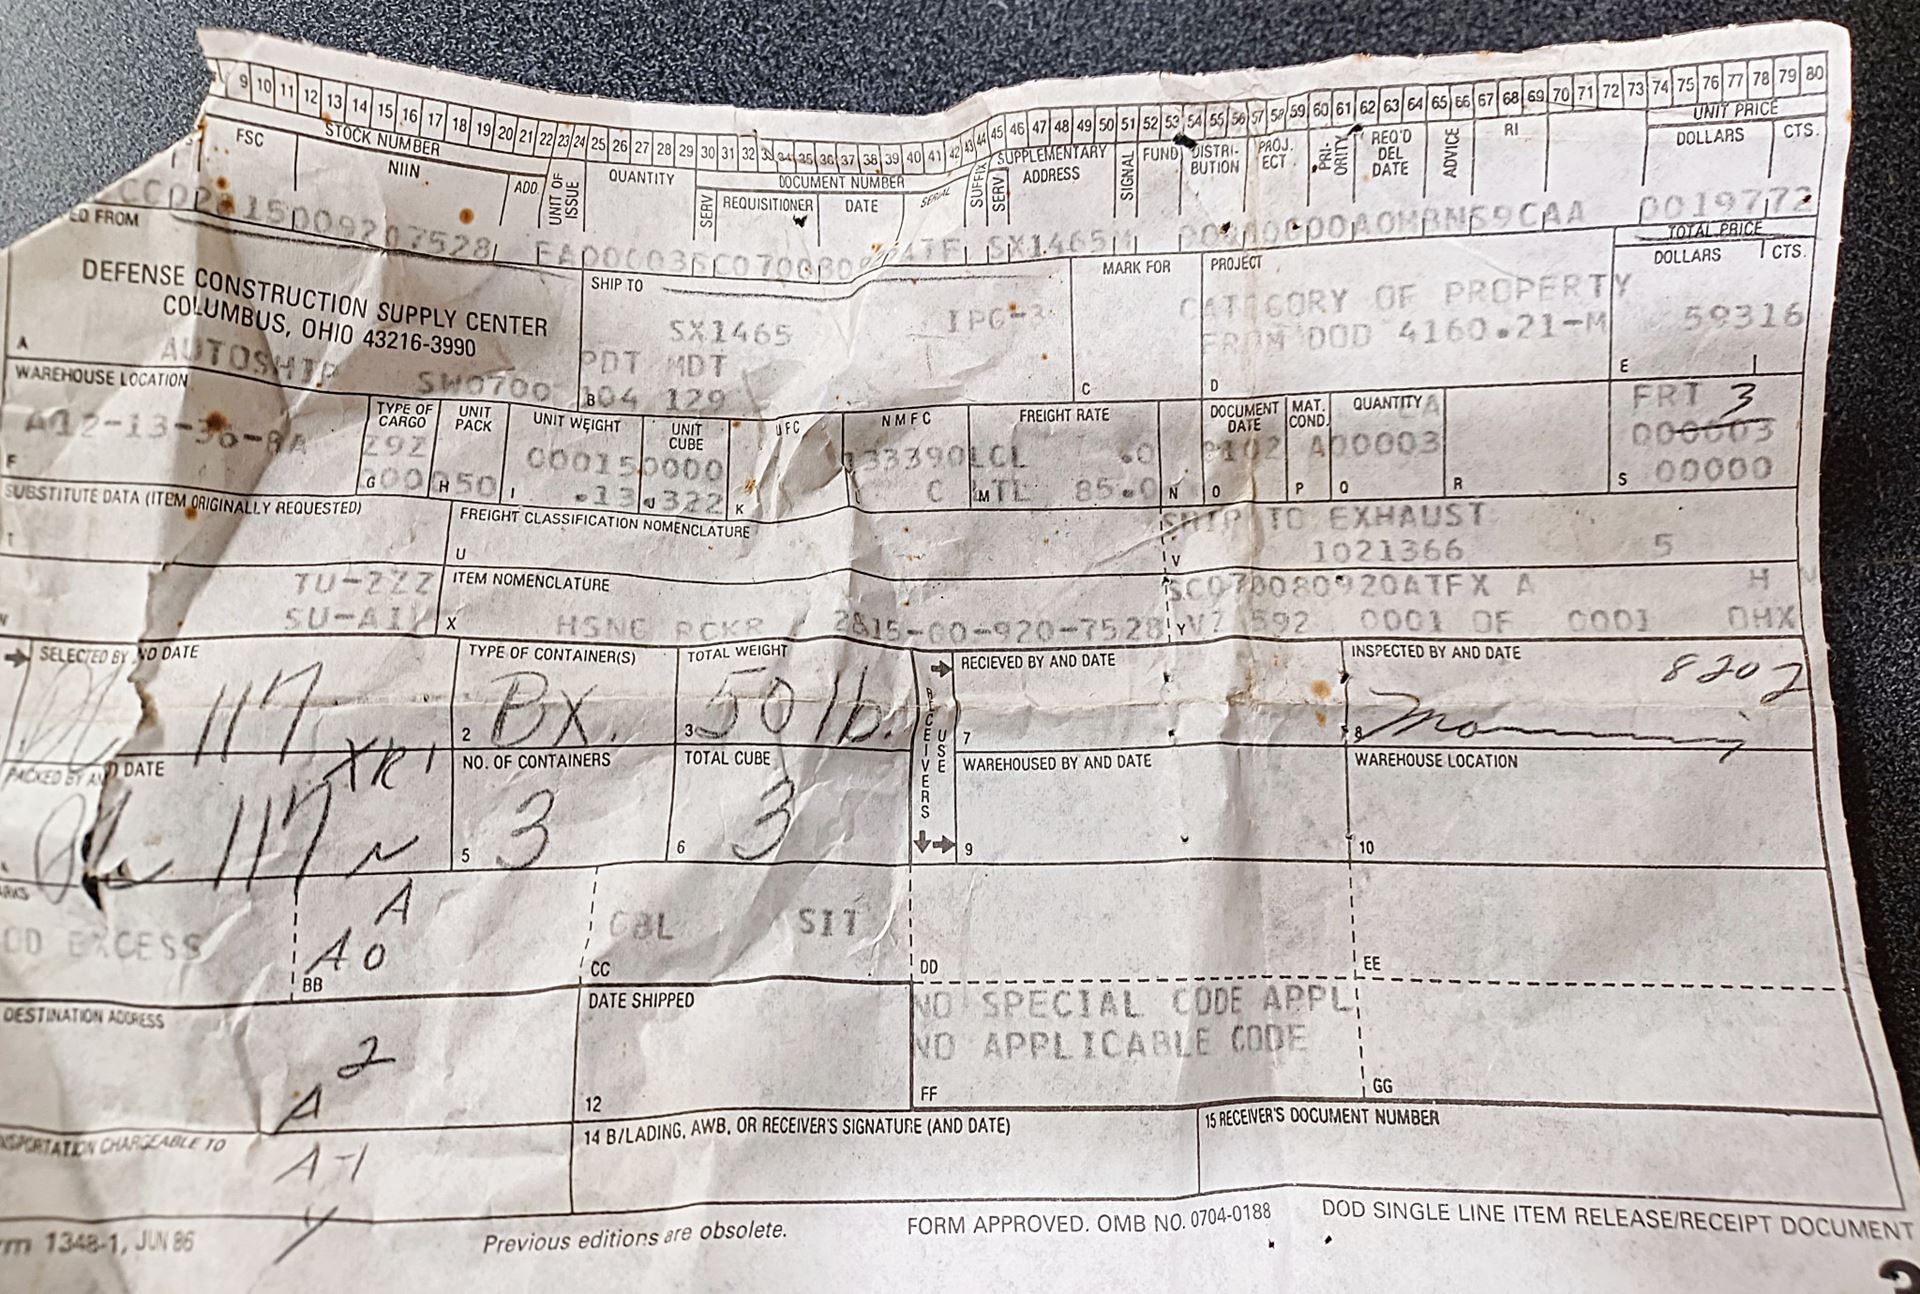 9 10 11 12 13 14 15 16 17 18 19 20 21 22 23 24 25 26 27 28 29 30 31 32 33 34 35 36 37 38 39 40 41 42 43 44 45 46 47 48 49 50 51 52 53 54 55 56 57 58 59 60 61 62 63 64 65 66 67 68 69 70 71 72 73 74 75 76 77 78 79 80
STOCK NUMBER
FSC NIIN ADD UNIT OF ISSUE QUANTITY
DOCUMENT NUMBER
SERV REQUISITIONER DATE SERIAL SUFFIX
SERV SUPPLEMENTARY ADDRESS SIGNAL FUND DISTRI-BUTION PROJ. ECT PRI-ORITY REQ'D DEL DATE ADVICE RI
UNIT PRICE
DOLLARS CTS.
SX1465 0019772
ED FROM
DEFENSE CONSTRUCTION SUPPLY CENTER
COLUMBUS, OHIO 43216-3990
A AUTOSHIP SW0700
SHIP TO
SX1465 IPG-3
PDT MDT
B 04 129
MARK FOR
C
PROJECT
CATEGORY OF PROPERTY
FROM DOD 4160.21-M
D
TOTAL PRICE
DOLLARS CTS.
59316
E
WAREHOUSE LOCATION
A12-13-36-8A
F
TYPE OF CARGO
Z9Z
G 00
UNIT PACK
H 50
UNIT WEIGHT
00015
I .13
UNIT CUBE
0000
J .322
UFC
K
NMFC
133390
L C
FREIGHT RATE
LCL .0
M LTL 85.0
N
DOCUMENT DATE
8102
O
MAT. COND.
A
P
QUANTITY
00003
Q
R
FRT 3
000003
S 00000
SUBSTITUTE DATA (ITEM ORIGINALLY REQUESTED)
T
FREIGHT CLASSIFICATION NOMENCLATURE
U
SHIP TO EXHAUST
V 1021366 5
TU-ZZZ
SU-A1
ITEM NOMENCLATURE
X HSNG RCKR 2815-00-920-7528
SC070080920ATFX A H
Y V7 592 0001 OF 0001 OHX
SELECTED BY AND DATE
117
TYPE OF CONTAINER(S)
2 BX.
TOTAL WEIGHT
3 50 lb.
RECEIVERS USE
RECIEVED BY AND DATE
7
INSPECTED BY AND DATE
8202
8
PACKED BY AND DATE
XR1
117 N
NO. OF CONTAINERS
5 3
TOTAL CUBE
6 3
WAREHOUSED BY AND DATE
9
WAREHOUSE LOCATION
10
ARKS
OD EXCESS
A
A0
BB
CBL SIT
CC
DD
EE
DESTINATION ADDRESS
2
A
DATE SHIPPED
12
NO SPECIAL CODE APPL
NO APPLICABLE CODE
FF
GG
NSPORTATION CHARGEABLE TO
A-1
Y
14 B/LADING, AWB, OR RECEIVER'S SIGNATURE (AND DATE)
15 RECEIVER'S DOCUMENT NUMBER
rm 1348-1, JUN 86
Previous editions are obsolete.
FORM APPROVED. OMB NO. 0704-0188
DOD SINGLE LINE ITEM RELEASE/RECEIPT DOCUMENT